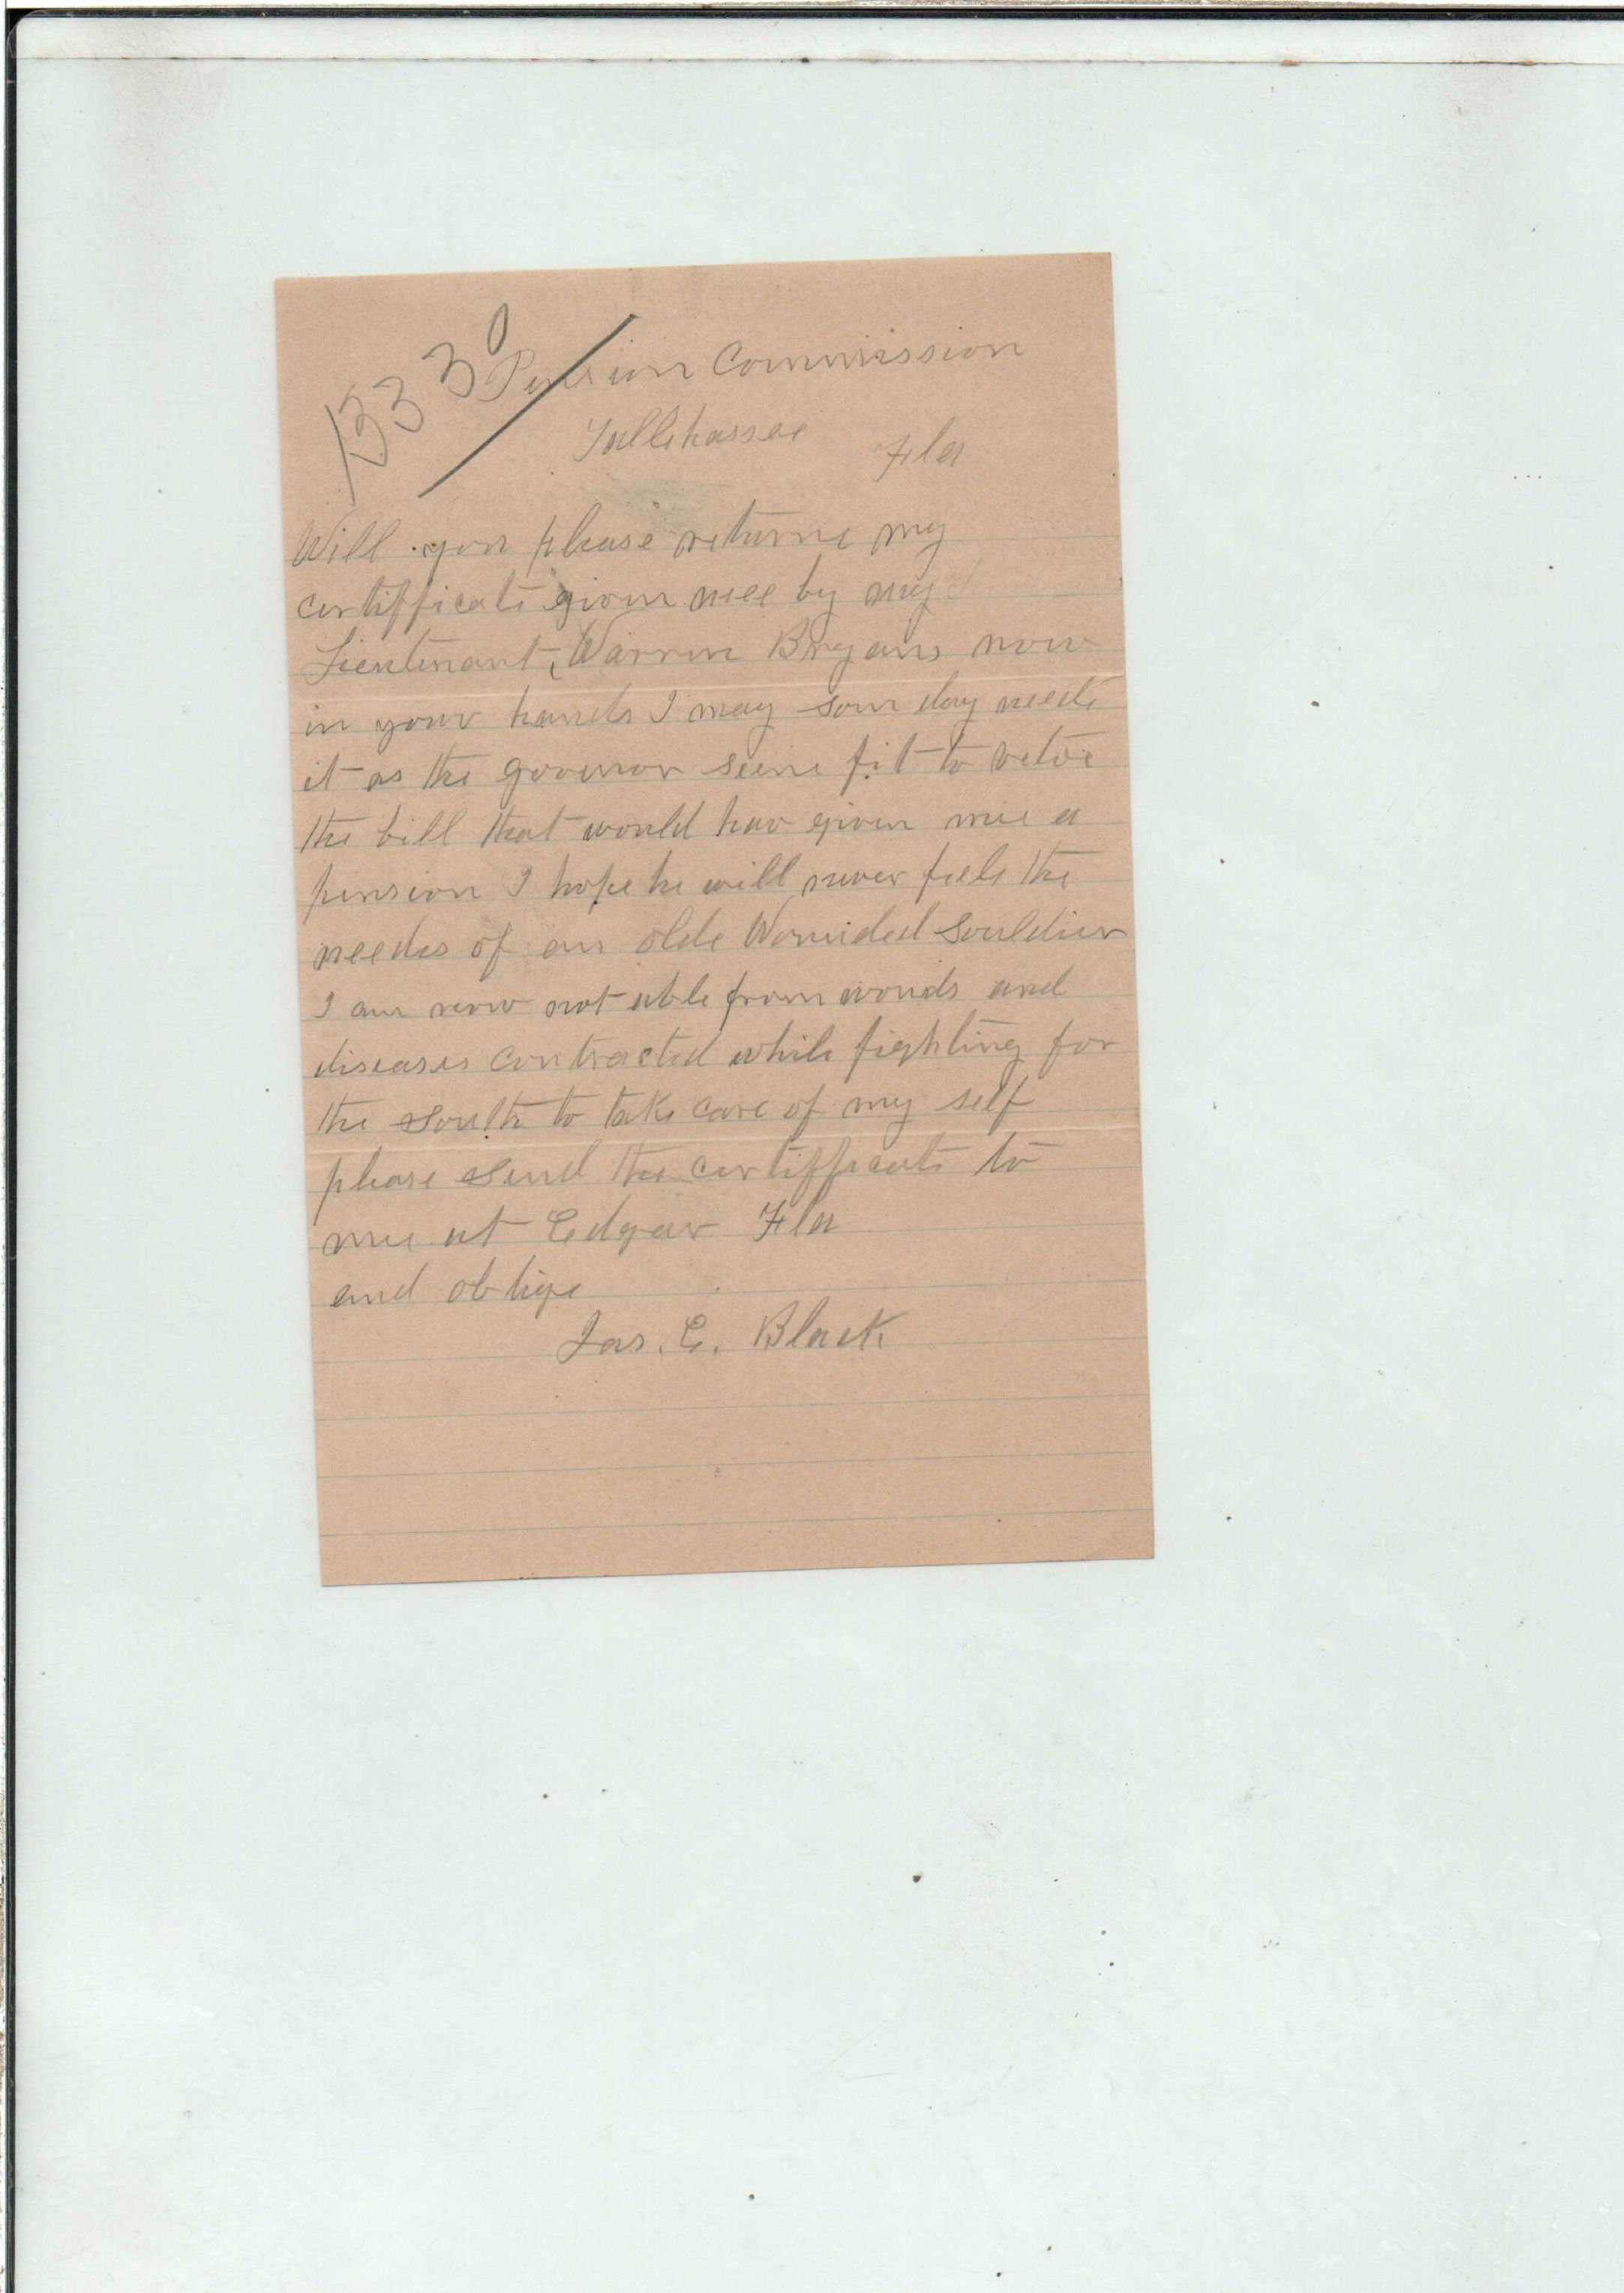 13330
Pension Commission
Tallehassee Fla
Will you please returne my
certifficate given mee by my
Lieutenant, Warren Bryans now
in your hands I may som day neede
it as the govenor seene fit to vetoe
the bill that would hav given mee a
pension I hope he will never feele the
needes of an olde Wounded Souldier
I am now not able from wonds and
diseases contracted while fighting for
the South to take care of my self
please send the certifficate to
mee at Edgar Fla
and oblige
Jas. C. Black